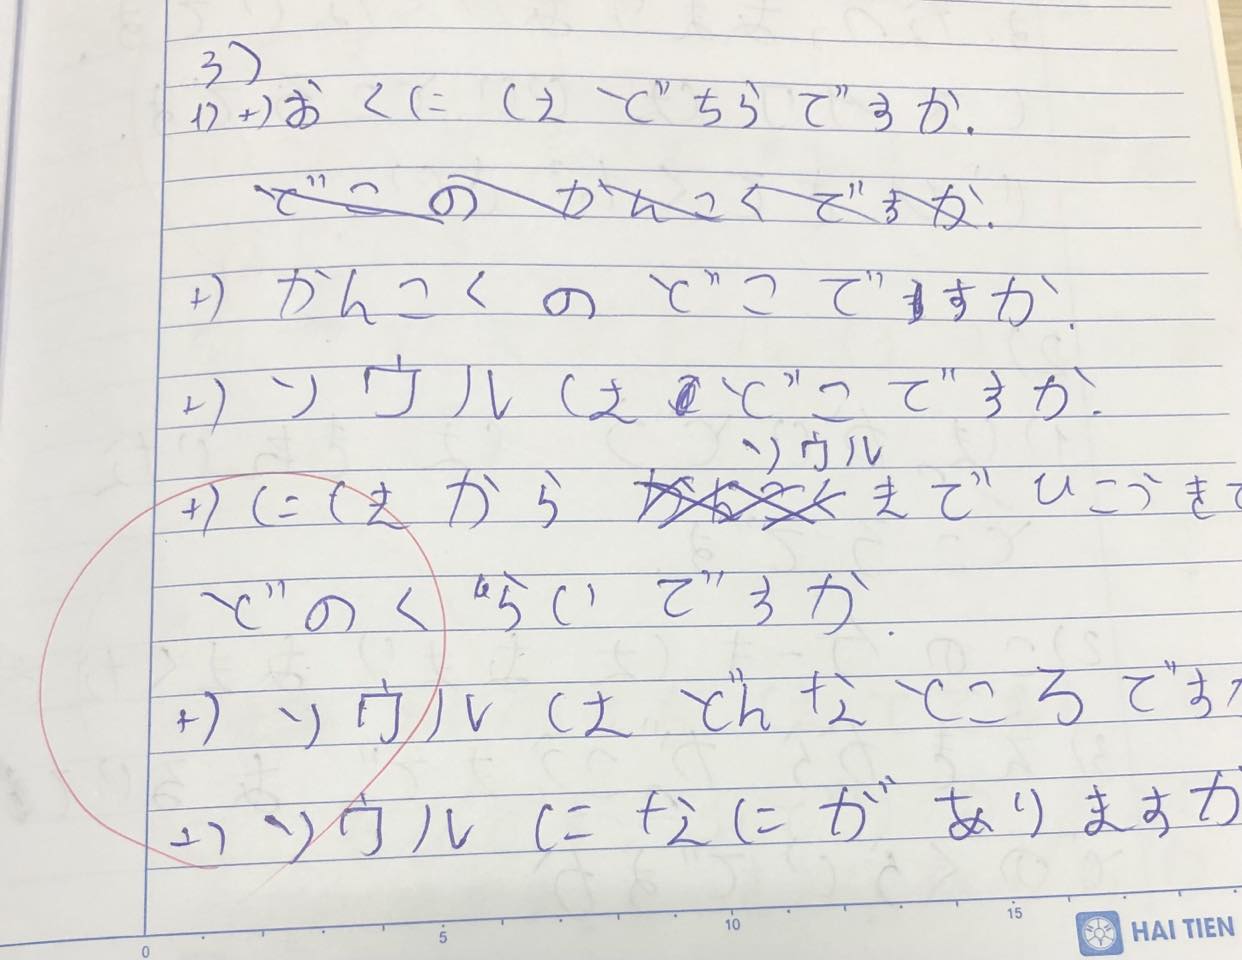 3)
1) +) おくにはどちらですか.
どこのかんこくですか.
+) かんこくのどこですか.
+) ソウルはどこですか.
ソウル
+) にほから までひこうきで
どのくらいですか.
+) ソウルはどんなところですか
+) ソウルになにがありますか
0 5 10 15
HAI TIEN